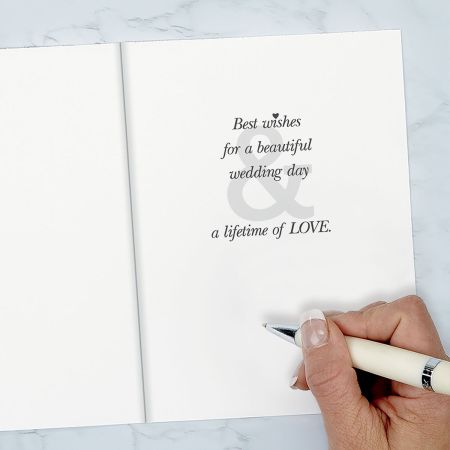 Best wishes
for a beautiful
wedding day
&
a lifetime of LOVE.